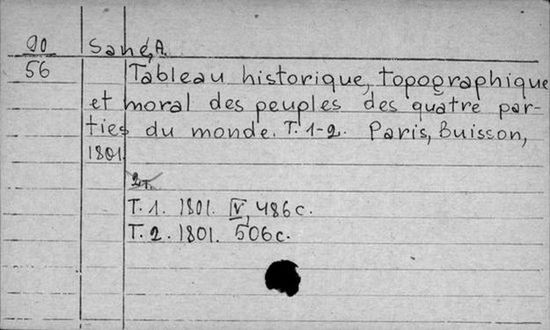 90
56
Sané, A.
Tableau historique, topographique
et moral des peuples des quatre par-
ties du monde. T. 1-2. Paris, Buisson,
1801.
2т.
T. 1. 1801. IV, 486 c.
T. 2. 1801. 506 c.